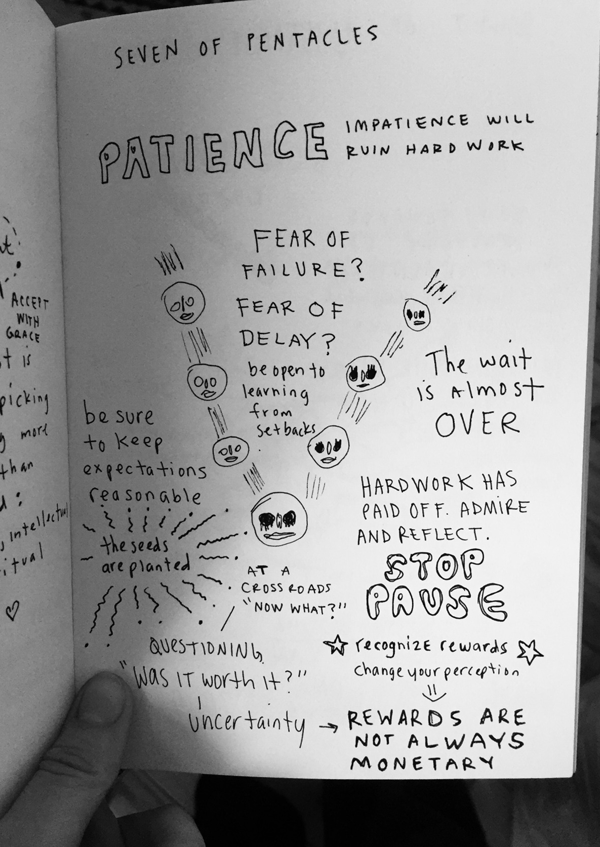 SEVEN OF PENTACLES
PATIENCE
IMPATIENCE WILL
RUIN HARD WORK
FEAR OF
FAILURE?
FEAR OF
DELAY?
be open to
learning
from
setbacks
The wait
is almost
OVER
be sure
to keep
expectations
reasonable
the seeds
are planted
HARDWORK HAS
PAID OFF. ADMIRE
AND REFLECT.
STOP
PAUSE
AT A
CROSSROADS
"NOW WHAT?"
QUESTIONING,
"WAS IT worth it?"
uncertainty →
☆ recognize rewards ☆
change your perception
⇓
REWARDS ARE
NOT ALWAYS
MONETARY
ACCEPT
WITH
GRACE
t is
picking
more
than
intellectual
itual
♡